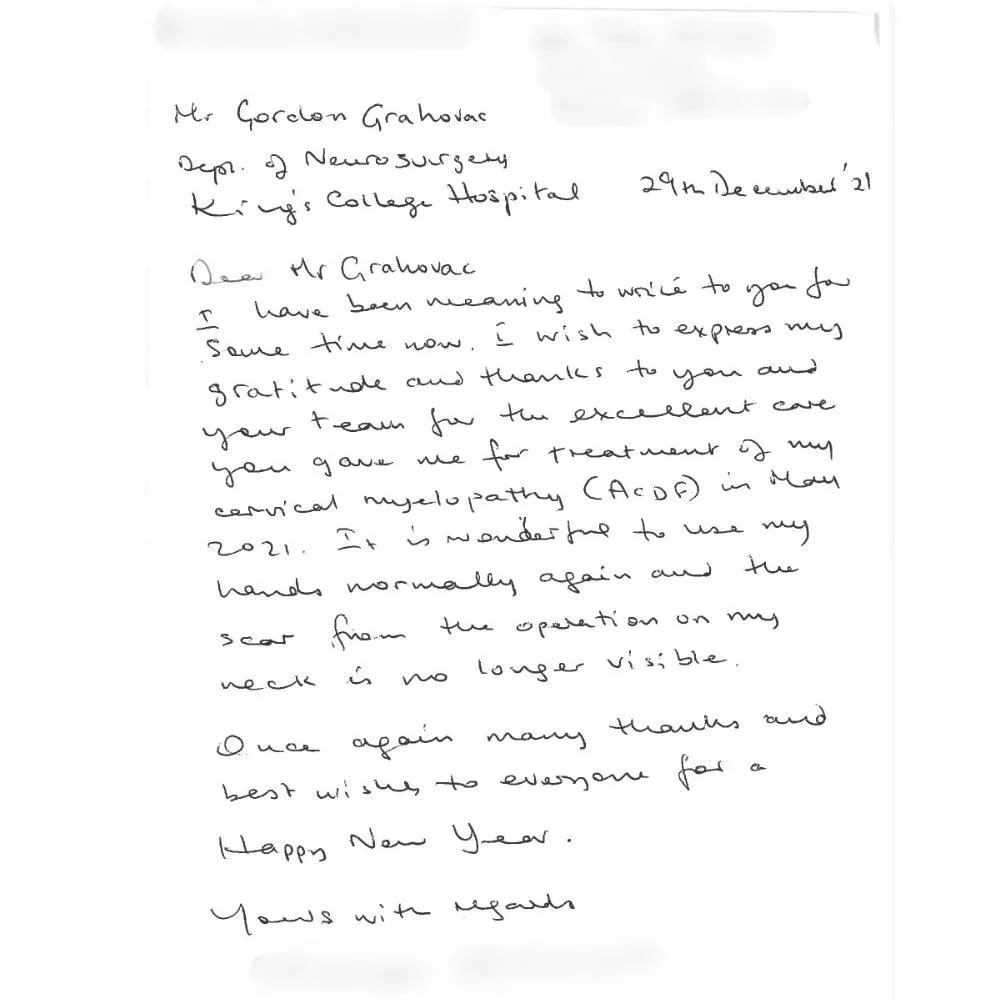 Mr Gordon Grahovac
Dept. of Neurosurgery
King's College Hospital 29th December '21
Dear Mr Grahovac
I have been meaning to write to you for
some time now. I wish to express my
gratitude and thanks to you and
your team for the excellent care
you gave me for treatment of my
cervical myelopathy (ACDF) in May
2021. It is wonderful to use my
hands normally again and the
scar from the operation on my
neck is no longer visible.
Once again many thanks and
best wishes to everyone for a
Happy New Year.
Yours with regards